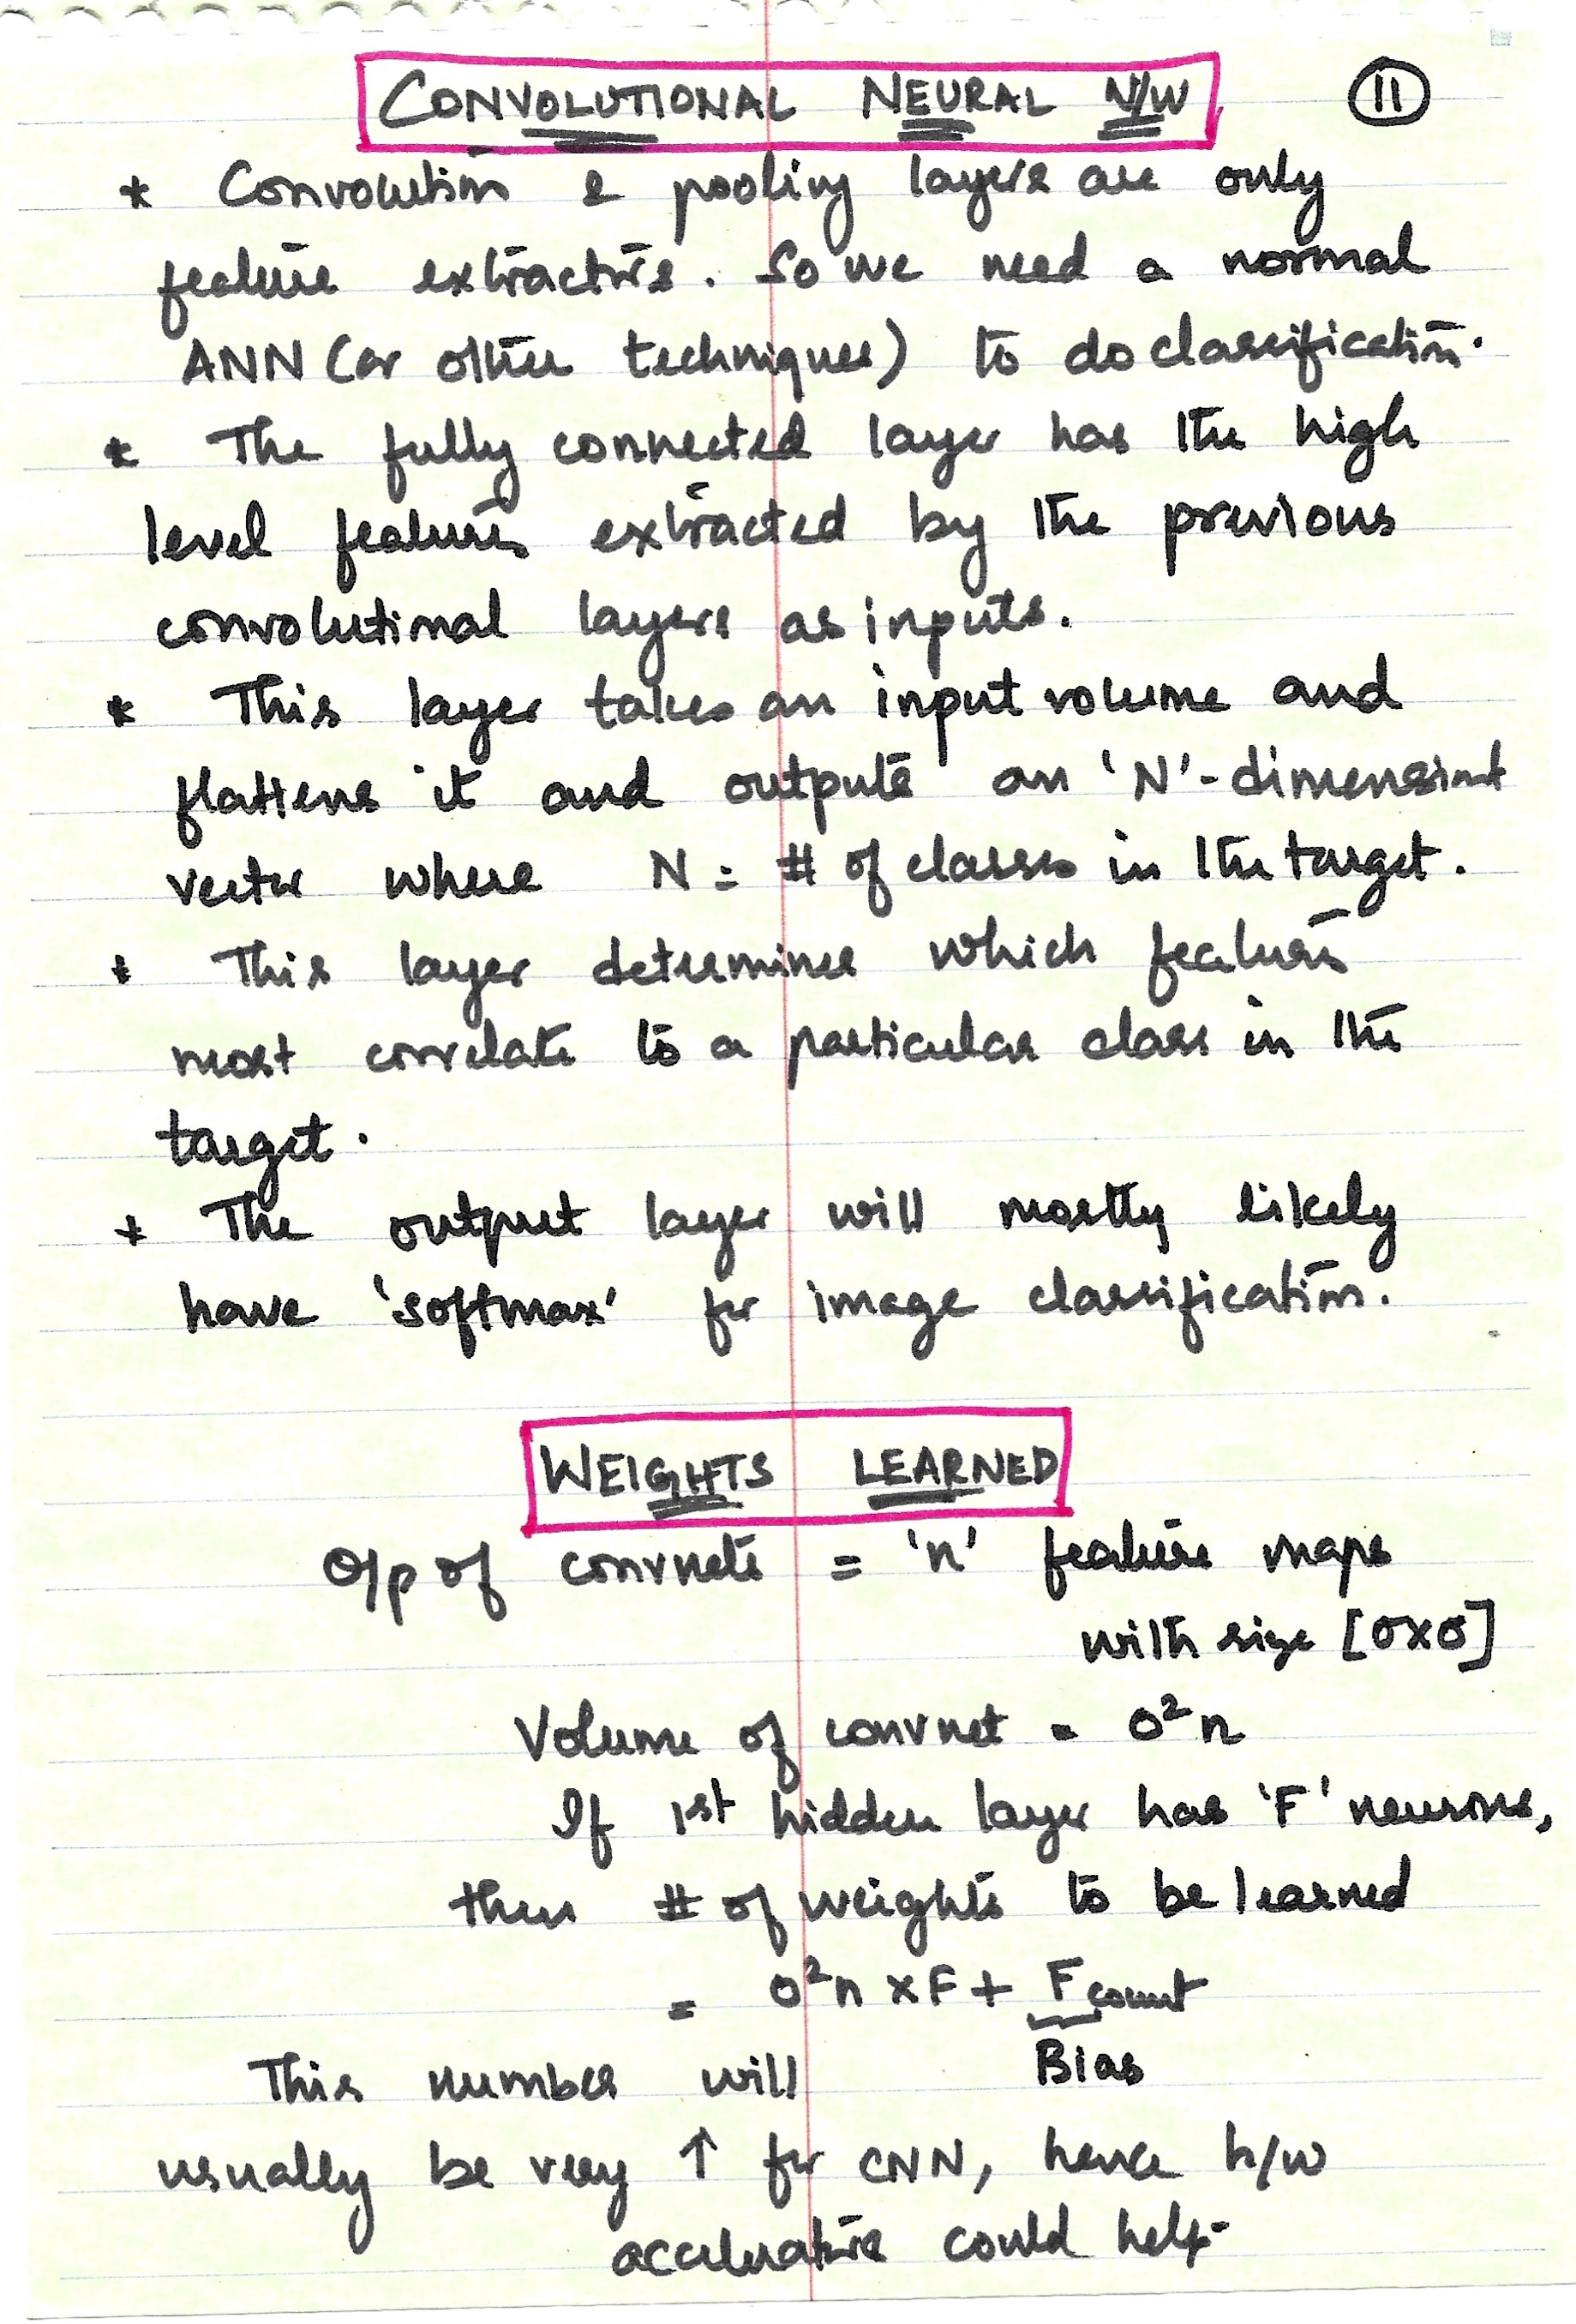 CONVOLUTIONAL NEURAL N/W
11
* Convolution & pooling layers are only
feature extractors. So we need a normal
ANN (or other techniques) to do classification.
* The fully connected layer has the high
level features extracted by the previous
convolutional layers as inputs.
* This layer takes an input volume and
flattens it and outputs an 'N'-dimensional
vector where N = # of classes in the target.
* This layer determines which features
most correlate to a particular class in the
target.
* The output layer will mostly likely
have 'softmax' for image classification.
WEIGHTS LEARNED
O/p of convnets = 'n' feature maps
with size [O×O]
Volume of convnet = O²n
If 1st hidden layer has 'F' neurons,
then # of weights to be learned
= O²n × F + F count
Bias
This number will
usually be very ↑ for CNN, hence h/w
accelerators could help.